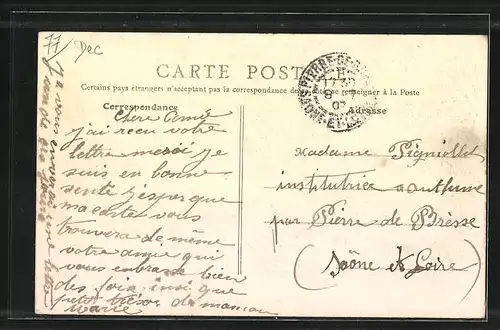 77 Dec
CARTE POSTALE
Certains pays étrangers n'acceptant pas la correspondance de ce côté se renseigner à la Poste
Correspondance
Adresse
PIERRE-DE-BRESSE
SAONE-ET-LOIRE
Chere Amie
j'ai recu votre
lettre merci je
suis en bonne
santé j'espere que
ma carte vous
trouvera de même
votre amie qui
vous embrasse bien
des fois insi que
petit trésor de maman
Marie
Je vous enverrai une
Madame Pigniollet
institutrice a authume
par Pierre de Bresse
(Saône et Loire)